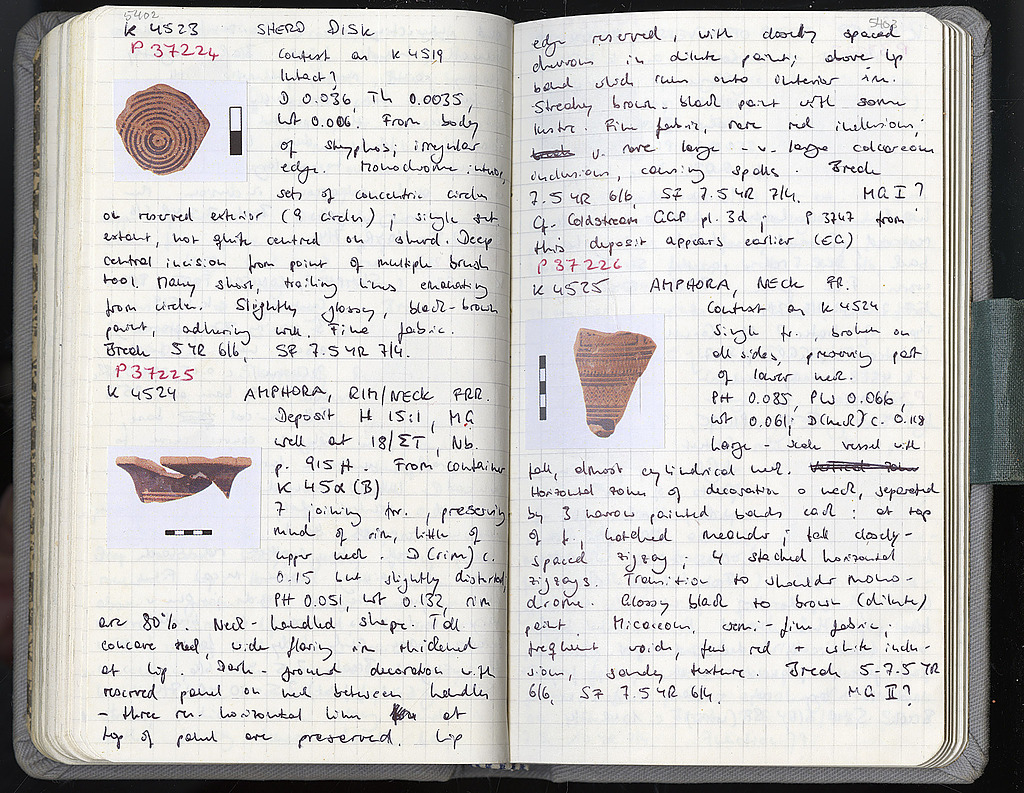 5402
K 4523 SHERD DISK
P 37224
Context as K 4519
Intact?
D 0.036, Th 0.0035,
wt 0.006. From body
of skyphos; irregular
edge. Monochrome interior,
sets of concentric circles
on reserved exterior (9 circles); single set
extant, not quite centred on sherd. Deep
central incision from point of multiple brush
tool. Many short, trailing lines emanating
from circles. Slightly glossy, black-brown
paint, adhering well. Fine fabric.
Break 5YR 6/6, SF 7.5YR 7/4.
P 37225
K 4524 AMPHORA, RIM/NECK FRR.
Deposit H 15:1, MG
well at 18/ΣT, Nb.
p. 915 ff. From container
K 45α (B)
7 joining frr., preserving
much of rim, little of
upper neck. D (rim) c.
0.15 but slightly distorted,
PH 0.051, wt 0.132, rim
are 80%. Neck-handled shape. Tall
concave neck, wide flaring rim thickened
at lip. Dark-ground decoration with
reserved panel on neck between handles
- three res. horizontal lines at
top of panel are preserved. Lip
5403
edge reserved, with closely spaced
chevrons in dilute paint; above lip
band which runs onto interior rim.
Streaky brown-black paint with some
lustre. Fine fabric, rare red inclusions,
v. rare large - v. large calcareous
inclusions, causing spalls. Break
7.5YR 6/6, SF 7.5YR 7/4. MG I?
Cf. Coldstream GGP pl. 3d; P 3747 from
this deposit appears earlier (EG)
P 37226
K 4525 AMPHORA, NECK FR.
Context as K 4524
Single fr., broken on
all sides, preserving part
of lower neck.
PH 0.085, PW 0.066,
wt 0.061; D(neck) c. 0.118
Large-scale vessel with
tall, almost cylindrical neck. Vertical zones
Horizontal zones of decoration o neck, separated
by 3 narrow painted bands each: at top
of fr., hatched meander; tall closely-
spaced zigzag; 4 stacked horizontal
zigzags. Transition to shoulder mono-
chrome. Glossy black to brown (dilute)
paint. Micaceous, semi-fine fabric;
frequent voids, few red + white inclu-
sions, sandy texture. Break 5-7.5YR
6/6, SF 7.5YR 6/4. MG II?